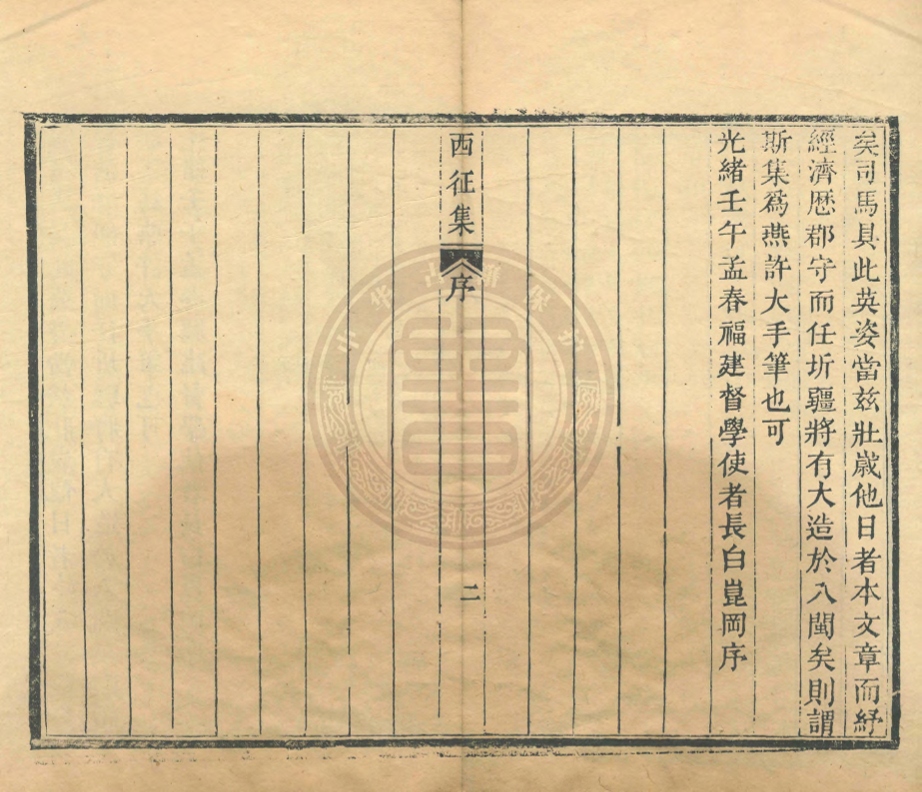 矣司馬具此英姿當兹壯歲他日者本文章而紓
經濟歴郡守而任圻疆將有大造於八閩矣則謂
斯集爲燕許大手筆也可
光緒壬午孟春福建督學使者長白崑岡序
西征集
序
二